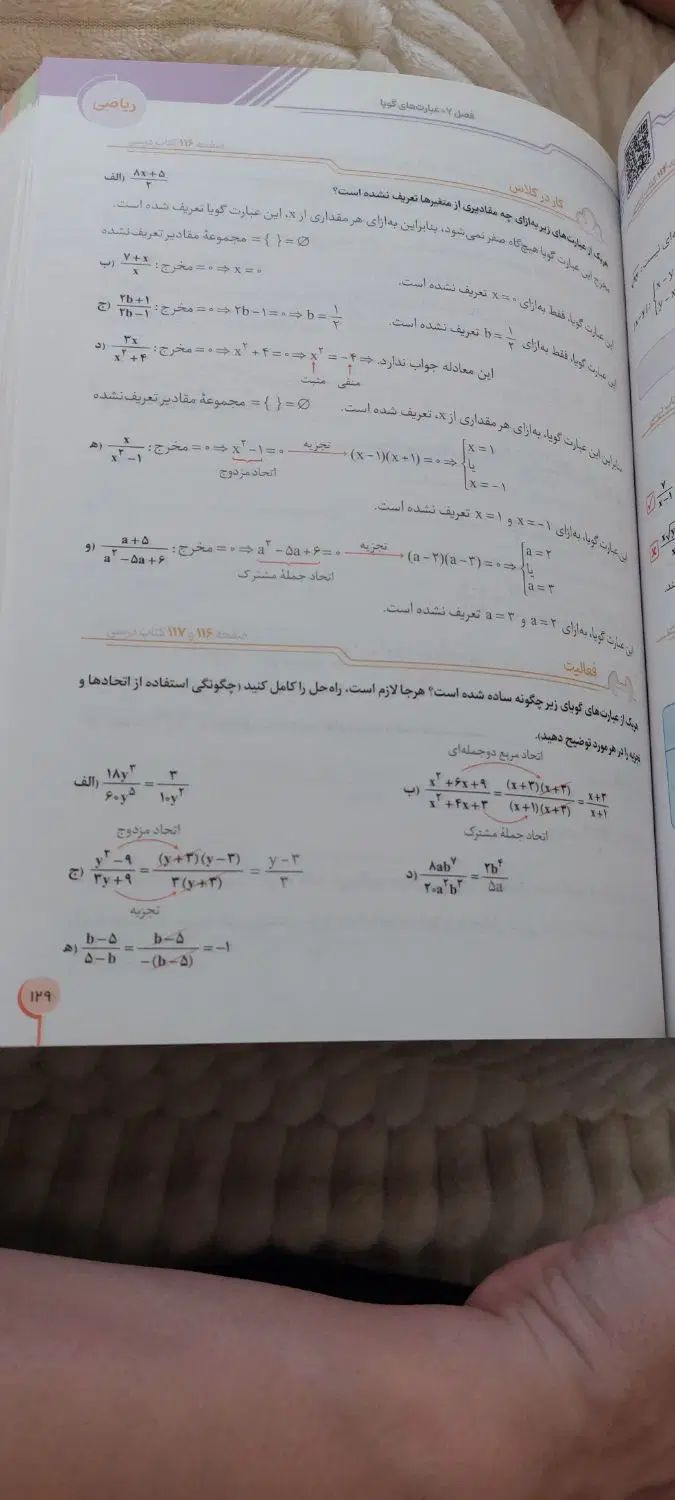 فصل ۷: عبارت‌های گویا
ریاضی
صفحه ۱۱۶ کتاب درسی
کار در کلاس
هریک از عبارت‌های زیر به‌ازای چه مقادیری از متغیرها تعریف نشده است؟
الف) (۸x+۵)/۲
مخرج این عبارت گویا هیچ‌گاه صفر نمی‌شود، بنابراین به‌ازای هر مقداری از x، این عبارت گویا تعریف شده است.
∅ = { } = مجموعهٔ مقادیر تعریف‌نشده
ب) (۷+x)/x : مخرج = ۰ ⇒ x = ۰
این عبارت گویا، فقط به‌ازای x = ۰ تعریف نشده است.
ج) (۲b+۱)/(۲b−۱) : مخرج = ۰ ⇒ ۲b−۱ = ۰ ⇒ b = ۱/۲
این عبارت گویا، فقط به‌ازای b = ۱/۲ تعریف نشده است.
د) ۳x/(x²+۴) : مخرج = ۰ ⇒ x²+۴ = ۰ ⇒ x² = −۴ ⇒ این معادله جواب ندارد.
مثبت منفی
بنابراین این عبارت گویا، به‌ازای هر مقداری از x، تعریف شده است. ∅ = { } = مجموعهٔ مقادیر تعریف‌نشده
ه) x/(x²−۱) : مخرج = ۰ ⇒ x²−۱ = ۰ تجزیه → (x−۱)(x+۱) = ۰ ⇒ { x = ۱ یا x = −۱
اتحاد مزدوج
این عبارت گویا، به‌ازای x = −۱ و x = ۱ تعریف نشده است.
و) (a+۵)/(a²−۵a+۶) : مخرج = ۰ ⇒ a²−۵a+۶ = ۰ تجزیه → (a−۲)(a−۳) = ۰ ⇒ { a = ۲ یا a = ۳
اتحاد جملهٔ مشترک
این عبارت گویا، به‌ازای a = ۲ و a = ۳ تعریف نشده است.
صفحه ۱۱۶ و ۱۱۷ کتاب درسی
فعالیت
هریک از عبارت‌های گویای زیر چگونه ساده شده است؟ هرجا لازم است، راه‌حل را کامل کنید (چگونگی استفاده از اتحادها و
تجزیه را در هر مورد توضیح دهید).
الف) ۱۸y³/۶۰y⁵ = ۳/۱۰y²
اتحاد مربع دوجمله‌ای
ب) (x²+۶x+۹)/(x²+۴x+۳) = (x+۳)(x+۳)/(x+۱)(x+۳) = (x+۳)/(x+۱)
اتحاد جملهٔ مشترک
اتحاد مزدوج
ج) (y²−۹)/(۳y+۹) = (y+۳)(y−۳)/۳(y+۳) = (y−۳)/۳
تجزیه
د) ۸ab⁷/۲۰a²b³ = ۲b⁴/۵a
ه) (b−۵)/(۵−b) = (b−۵)/−(b−۵) = −۱
۱۲۹